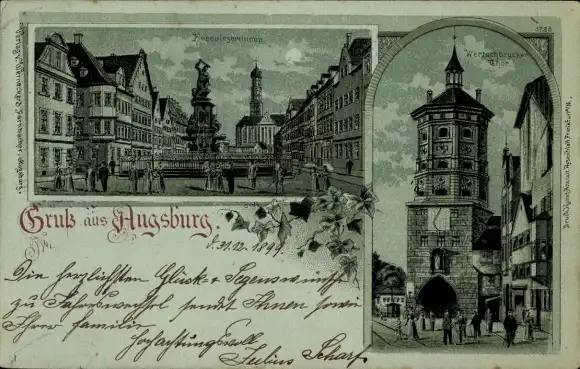 Herculesbrunnen.
1788
Wertachbrucker-
Thor.
Gruß aus Augsburg.
d. 31.12.1899
Die herzlichsten Glück- & Segenswünsche
zu Jahreswechsel sendet Ihnen sowie
Ihrer Familie
hochachtungsvoll
Julius Scharf